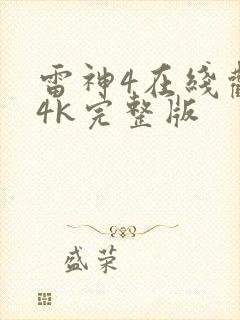 雷神4在线
4K完整版
盛荣